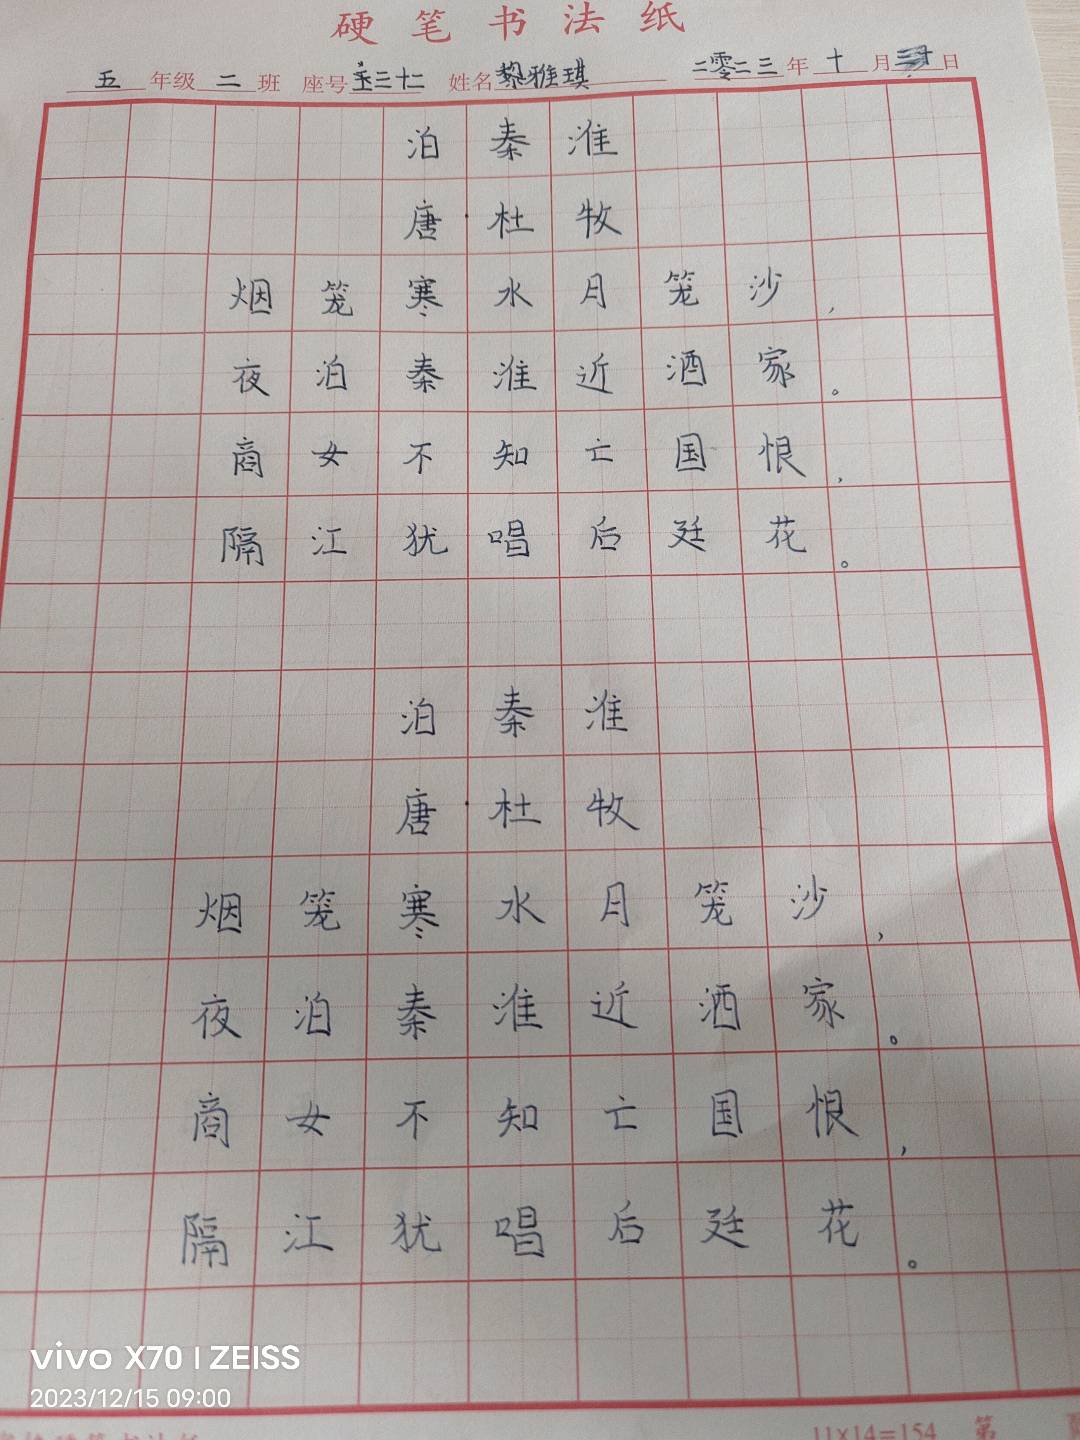 硬笔书法纸
五 年级 二 班 座号 三十二 姓名 黎雅琪 二零二三 年 十 月 日
泊秦淮
唐·杜牧
烟笼寒水月笼沙，
夜泊秦淮近酒家。
商女不知亡国恨，
隔江犹唱后廷花。
泊秦淮
唐·杜牧
烟笼寒水月笼沙，
夜泊秦淮近洒家。
商女不知亡国恨，
隔江犹唱后廷花。
vivo X70 | ZEISS
2023/12/15 09:00
11×14=154 第